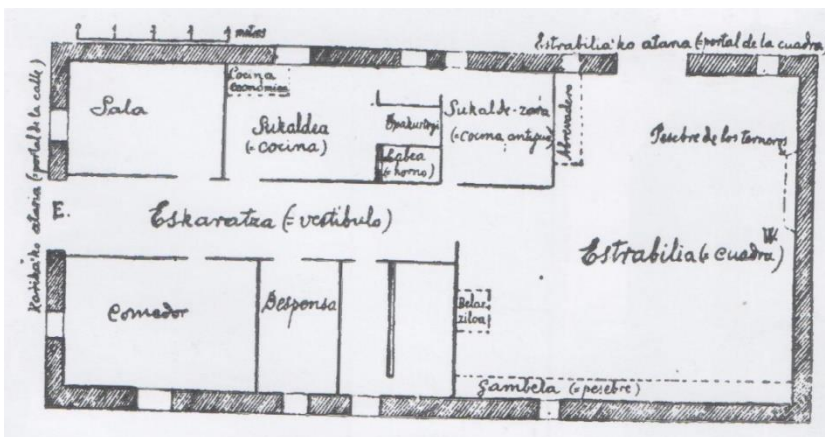 0 1 2 3 4 metros
Estrabilia'ko ataria (=portal de la cuadra)
Kalika'ko ataria (=portal de la calle)
Sala
Cocina
económica
Sukaldea
(=cocina)
Opakustegi
Labea
(=horno)
Sukalde-zarra
(=cocina antigua)
Abrevadero
Pesebre de los terneros
E.
Eskaratza (=vestíbulo)
W
Estrabilia (=cuadra)
Comedor
Despensa
Belar-
ziloa
Gambela (=pesebre)